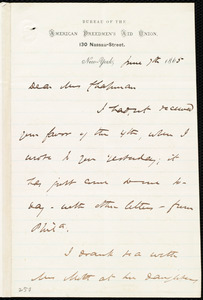 BUREAU OF THE
AMERICAN FREEDMEN'S AID UNION.
130 Nassau-Street.
New-York, June 7th 1865
Dear Mrs Chapman
I had not received
your favor of the 4th when I
wrote to you yesterday; it
has just come to me to-
day - with other letters - from
Phila.
I drank tea with
Mrs Mott at her daughters
258